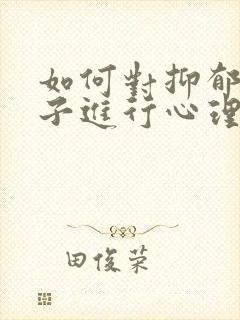 如何對抑郁
子進行心理
田俊荣